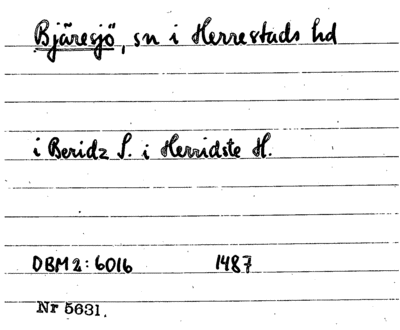 Bjäresjö, sn i Herrestads hd
i Beridz S. i Herridste H.
DBM2:6016 1487
Nr 5631.